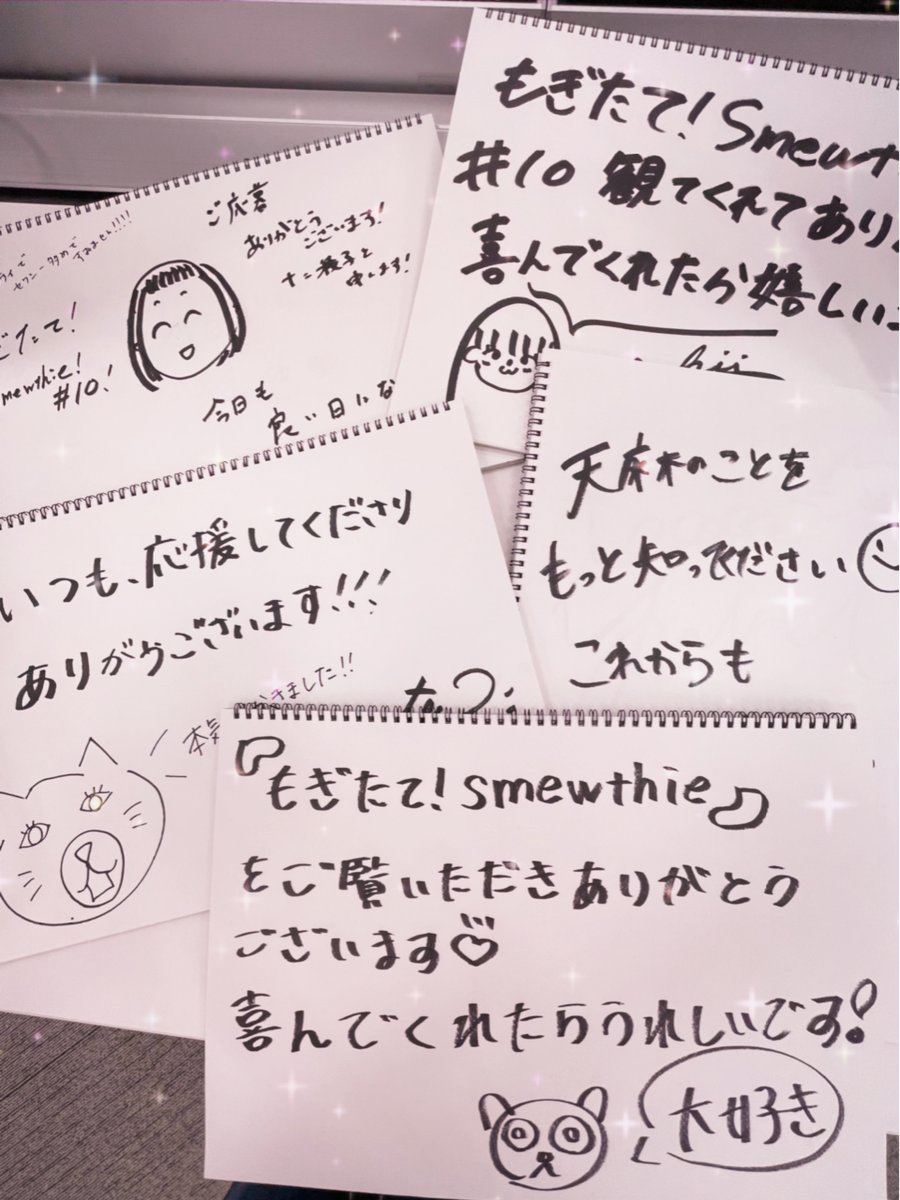 もぎたて! Smewt
#10 観てくれてあり
喜んでくれたら嬉しい
ご応募
ありがとう
ございます!
申します!
すみません!!!!
たて!
mewthie!
#10!
今日も
良い日にな
天麻木のことを
もっと知ってください
これからも
いつも、応援してくださり
ありがとうございます!!!
本気
きました!!
『もぎたて! smewthie』
をご覧いただきありがとう
ございます♡
喜んでくれたらうれしいです!
大好き